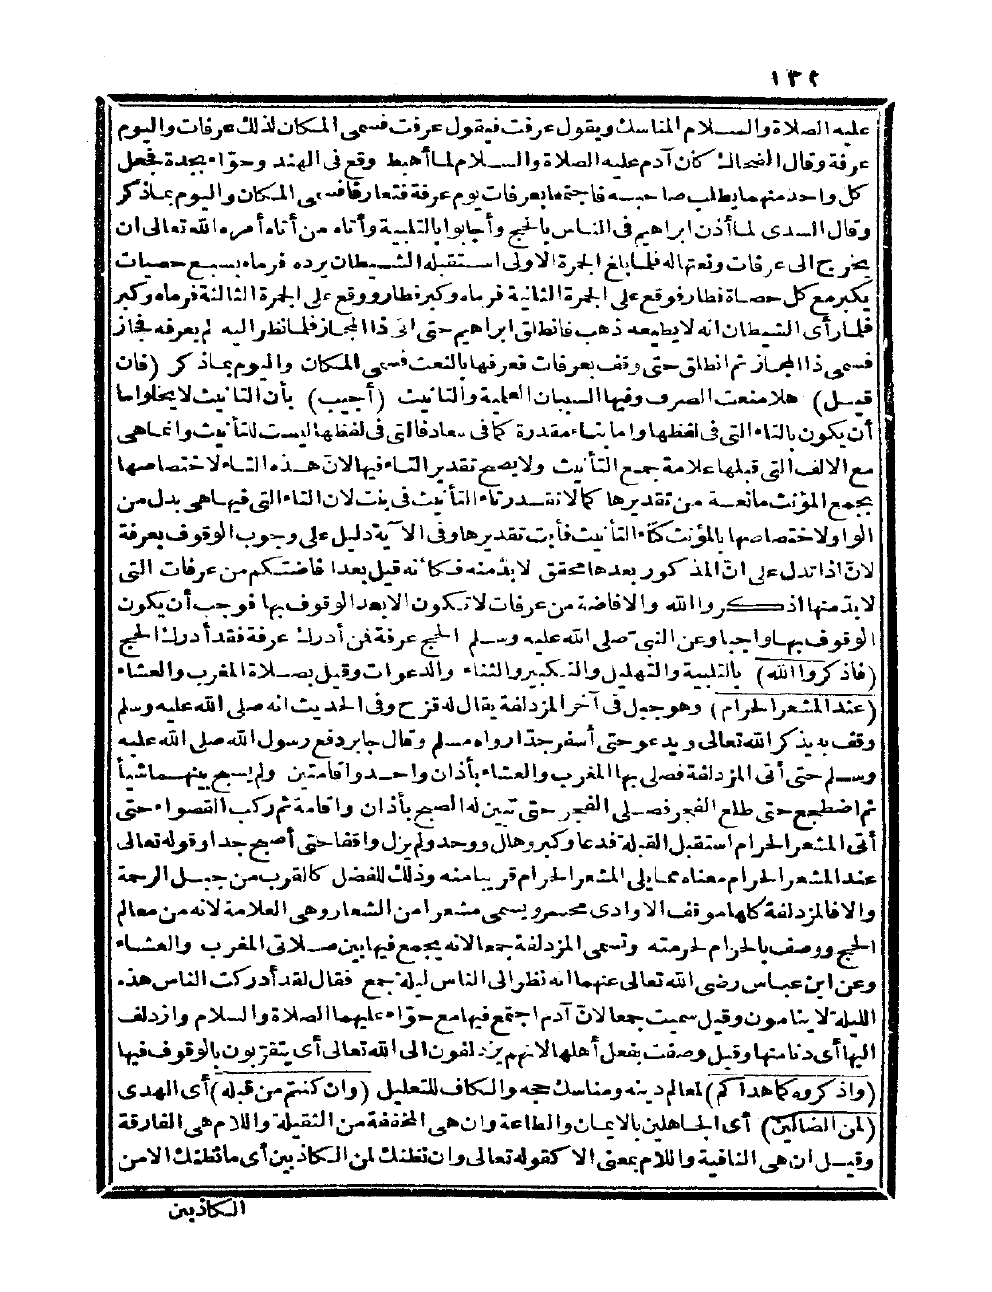 ١٣٢
عليه الصلاة والسلام المناسك ويقول عرفت فيقول عرفت فسمى المكان لذلك عرفات واليوم
عرفة وقال الضحاك كان آدم عليه الصلاة والسلام لما أهبط وقع فى الهند وحوّاء بجدة فجعل
كل واحد منهما يطلب صاحبه فاجتمعا بعرفات يوم عرفة فتعارفا فسمى المكان واليوم بما ذكر
وقال السدى لما أذن ابراهيم فى الناس بالحج وأجابوا بالتلبية وأتاه من أتاه أمره الله تعالى ان
يخرج الى عرفات ونعتها له فلما بلغ الجمرة الاولى استقبله الشيطان يرده فرماه بسبع حصيات
يكبر مع كل حصاة فطار فوقع على الجمرة الثانية فرماه وكبر فطار ووقع على الجمرة الثالثة فرماه وكبر
فلما رأى الشيطان انه لا يطيعه ذهب فانطلق ابراهيم حتى اتى ذا المجاز فلما نظر اليه لم يعرفه فجاز
فسمى ذا المجاز ثم انطلق حتى وقف بعرفات فعرفها بالنعت فسمى المكان واليوم بما ذكر (فان
قيل) هلا منعت الصرف وفيها السببان العلمية والتأنيث (أجيب) بأن التأنيث لا يخلوا ما
أن يكون بالتاء التى فى لفظها واما بتاء مقدرة كما فى سعاد فالتى فى لفظها ليست للتأنيث وانما هى
مع الالف التى قبلها علامة جمع التأنيث ولا يصح تقدير التاء فيها لانّ هذه التاء لاختصاصها
بجمع المؤنث مانعة من تقديرها كما لا تقدر تاء التأنيث فى بنت لان التاء التى فيها هى بدل من
الواو لاختصاصها بالمؤنث كتاء التأنيث فأبت تقديرها وفى الآية دليل على وجوب الوقوف بعرفة
لانّ اذا تدل على انّ المذكور بعدها محقق لابدّ منه فكأنه قيل بعد افاضتكم من عرفات التى
لابدّ منها اذكروا الله والافاضة من عرفات لا تكون الا بعد الوقوف بها فوجب أن يكون
الوقوف بها واجبا وعن النبىّ صلى الله عليه وسلم الحج عرفة فمن أدرك عرفة فقد أدرك الحج
(فاذكروا الله) بالتلبية والتهليل والتكبير والثناء والدعوات وقيل بصلاة المغرب والعشاء
(عند المشعر الحرام) وهو جبل فى آخر المزدلفة يقال له قزح وفى الحديث انه صلى الله عليه وسلم
وقف به يذكر الله تعالى ويدعو حتى أسفر جدّا رواه مسلم وقال جابر دفع رسول الله صلى الله عليه
وسلم حتى أتى المزدلفة فصلى بها المغرب والعشاء بأذان واحد واقامتين ولم يسبح بينهما شيأ
ثم اضطجع حتى طلع الفجر فصلى الفجر حتى تبين له الصبح بأذان واقامة ثم ركب القصواء حتى
أتى المشعر الحرام استقبل القبلة فدعا وكبر وهلل ووحد ولم يزل واقفا حتى أصبح جدا وقوله تعالى
عند المشعر الحرام معناه مما يلى المشعر الحرام قريبا منه وذلك للفضل كالقرب من جبل الرحمة
والا فالمزدلفة كلها موقف الا وادى محسر ويسمى مشعرا من الشعار وهى العلامة لانه من معالم
الحج ووصف بالحرام لحرمته وتسمى المزدلفة جمعا لانه يجمع فيها بين صلاتى المغرب والعشاء
وعن ابن عباس رضى الله تعالى عنهما انه نظر الى الناس ليلة جمع فقال لقد أدركت الناس هذه
الليلة لا ينامون وقيل سميت جمعا لانّ آدم اجتمع فيها مع حوّاء عليهما الصلاة والسلام وازدلف
اليها أى دنا منها وقيل وصفت بفعل أهلها لانهم يزدلفون الى الله تعالى أى يتقرّبون بالوقوف فيها
(واذكروه كما هداكم) لمعالم دينه ومناسك حجه والكاف للتعليل (وان كنتم من قبله) أى الهدى
(لمن الضالين) أى الجاهلين بالايمان والطاعة وان هى المخففة من الثقيلة واللام هى الفارقة
وقيل ان هى النافية واللام بمعنى الا كقوله تعالى وان نظنك لمن الكاذبين أى ما نظنك الا من
الكاذبين